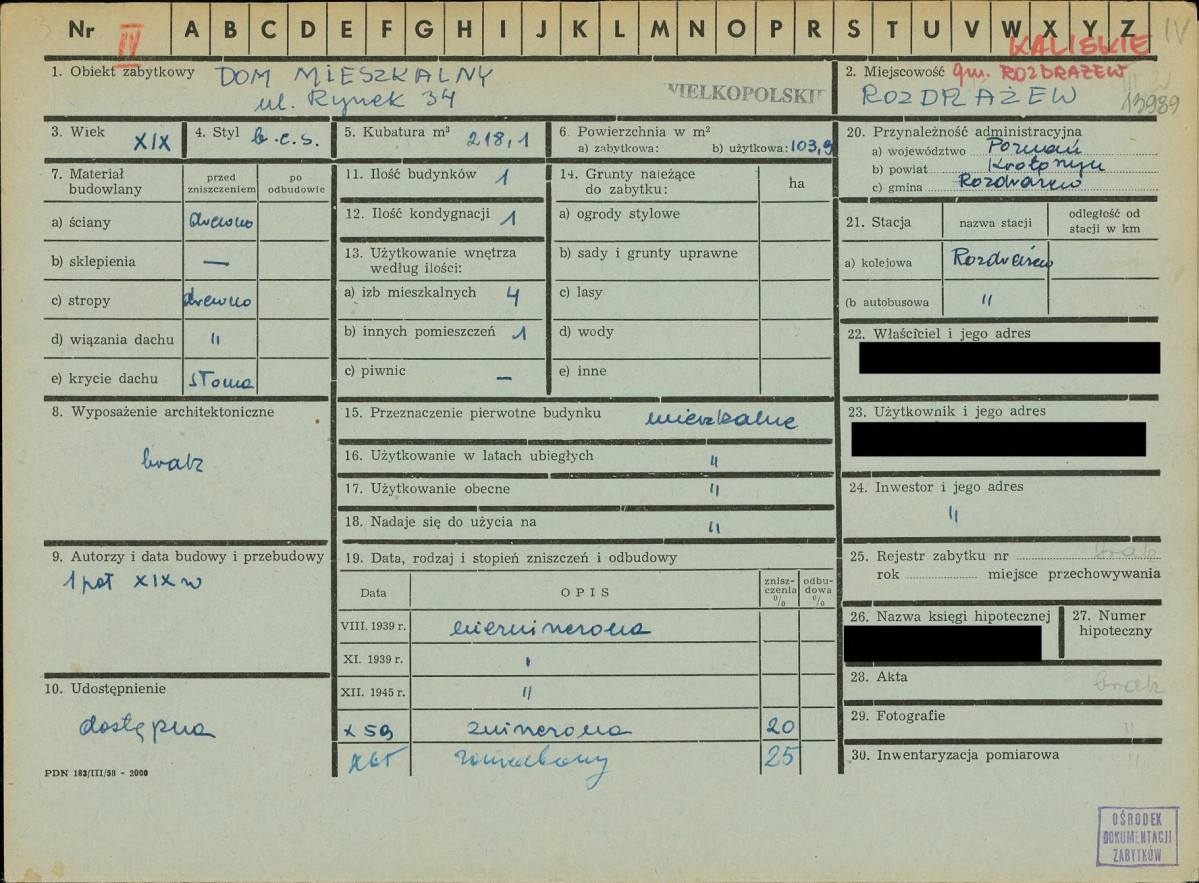 Nr IV A B C D E F G H I J K L M N O P R S T U V W X Y Z IV
KALISKIE
1. Obiekt zabytkowy DOM MIESZKALNY
ul. Rynek 34
WIELKOPOLSKIE
2. Miejscowość gm. ROZDRAŻEW
ROZDRAŻEW
13989
3. Wiek XIX
4. Styl b.c.s.
5. Kubatura m³ 218,1
6. Powierzchnia w m²
a) zabytkowa: b) użytkowa: 103,9
7. Materiał budowlany
przed zniszczeniem
po odbudowie
a) ściany drewno
b) sklepienia —
c) stropy drewno
d) wiązania dachu "
e) krycie dachu słoma
8. Wyposażenie architektoniczne
brak
9. Autorzy i data budowy i przebudowy
1 poł XIX w
10. Udostępnienie
dostępna
PDN 183/III/58 - 2000
11. Ilość budynków 1
12. Ilość kondygnacji 1
13. Użytkowanie wnętrza
według ilości:
a) izb mieszkalnych 4
b) innych pomieszczeń 1
c) piwnic —
14. Grunty należące
do zabytku:
ha
a) ogrody stylowe
b) sady i grunty uprawne
c) lasy
d) wody
e) inne
15. Przeznaczenie pierwotne budynku mieszkalne
16. Użytkowanie w latach ubiegłych "
17. Użytkowanie obecne "
18. Nadaje się do użycia na "
19. Data, rodzaj i stopień zniszczeń i odbudowy
Data OPIS znisz-czenia % odbu-dowa %
VIII. 1939 r. niezniszczona
XI. 1939 r. "
XII. 1945 r. "
X 59 zniszczona 20
25
20. Przynależność administracyjna
a) województwo Poznań
b) powiat Krotoszyn
c) gmina Rozdrażew
21. Stacja nazwa stacji odległość od stacji w km
a) kolejowa Rozdrażew
(b autobusowa "
22. Właściciel i jego adres
23. Użytkownik i jego adres
24. Inwestor i jego adres
"
25. Rejestr zabytku nr brak
rok miejsce przechowywania
26. Nazwa księgi hipotecznej
27. Numer
hipoteczny
28. Akta brak
29. Fotografie "
30. Inwentaryzacja pomiarowa "
OŚRODEK
DOKUMENTACJI
ZABYTKÓW